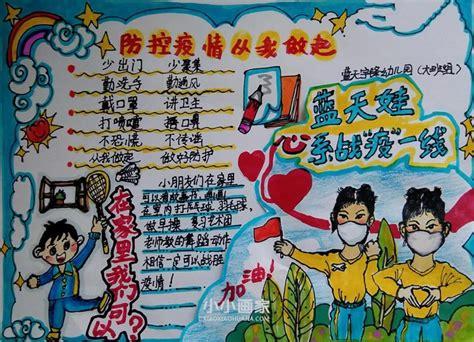 防控疫情从我做起
蓝天宇锋幼儿园
少出门 少聚集
勤洗手 勤通风
戴口罩 讲卫生
打喷嚏 捂口鼻
不恐慌 不传谣
从我做起 做好防护
蓝天娃
心系战"疫"一线
小朋友们在家里
在里内打乒乓球,羽毛球
老师教的舞蹈动作
相信一定可以战胜
疫情!
在家里我们可以
加油!
小小画家
XIAOXIAOHUAJIA.COM